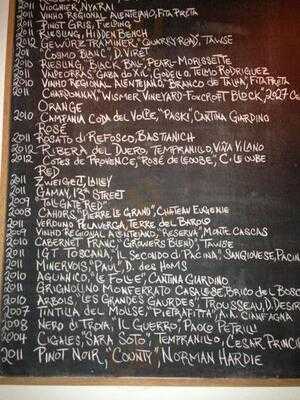 2011 VIOGNIER, NYARAI
2011 VINHO REGIONAL ALENTEJANO, FITA PRETA
2011 PINOT GRIS, FIELDING
2011 RIESLING, HIDDEN BENCH
2012 GEWÜRZTRAMINER, "QUARRY ROAD", TAWSE
"COSMO BLANC", D. VIRET
2010 RIESLING, "BLACK BALL", PEARL-MORISSETTE
VALDEORRAS, "GABA DO XIL", GODELLO, TELMO RODRIGUEZ
2010 VINHO REGIONAL ALENTEJANO, "BRANCO DE TALHA", FITA PRETA
CHARDONNAY, "WISMER VINEYARD-FOXCROFT BLOCK", 2027 CE
ORANGE
2010 CAMPANIA CODA DEL VOLPE, "PASKI", CANTINA GIARDINO
ROSÉ
2011 ROSATO DI REFOSCO, BASTIANICH
2012 RIBERA DEL DUERO, TEMPRANILLO, VIÑA VILANO
2012 COTES DE PROVENCE, "ROSÉ DE LEOUBE", C. LEOUBE
RED
2011 ZWEIGELT, LAILEY
2011 GAMAY, 13TH STREET
2009 "TOLLGATE RED"
2008 CAHORS, "PIERRE LE GRAND", CHÂTEAU EUGENIE
2011 VERDUNO PELAVERGA, TERRE DEL BAROLO
2009 VINHO REGIONAL ALENTEJANO, "RESERVA", MONTE CASCAS
2010 CABERNET FRANC, "GROWERS BLEND", TAWSE
2011 IGT TOSCANA, "IL SECONDO DI PACINA", SANGIOVESE, PACIN
2011 MINERVOIS, "PAUL", D. DES HOMS
2010 AGLIANICO, "LE FOLE", CANTINA GIARDINO
2011 GRIGNOLINO MONFERRATO CASALESE, BRICO DEL BOSC
2010 ARBOIS, "LES GRANDES GAURDES", TROUSSEAU, D. DESIR
2007 TINTILIA DEL MOLISE, "PIETRAFITTA", A.A. CIANFAGNA
2008 NERO DI TROIA, "IL GUERRO", PAOLO PETRILLI
2004 CIGALES, "SARA SOTO", TEMPRANILLO, CESAR PRINCI
2011 PINOT NOIR, "COUNTY", NORMAN HARDIE